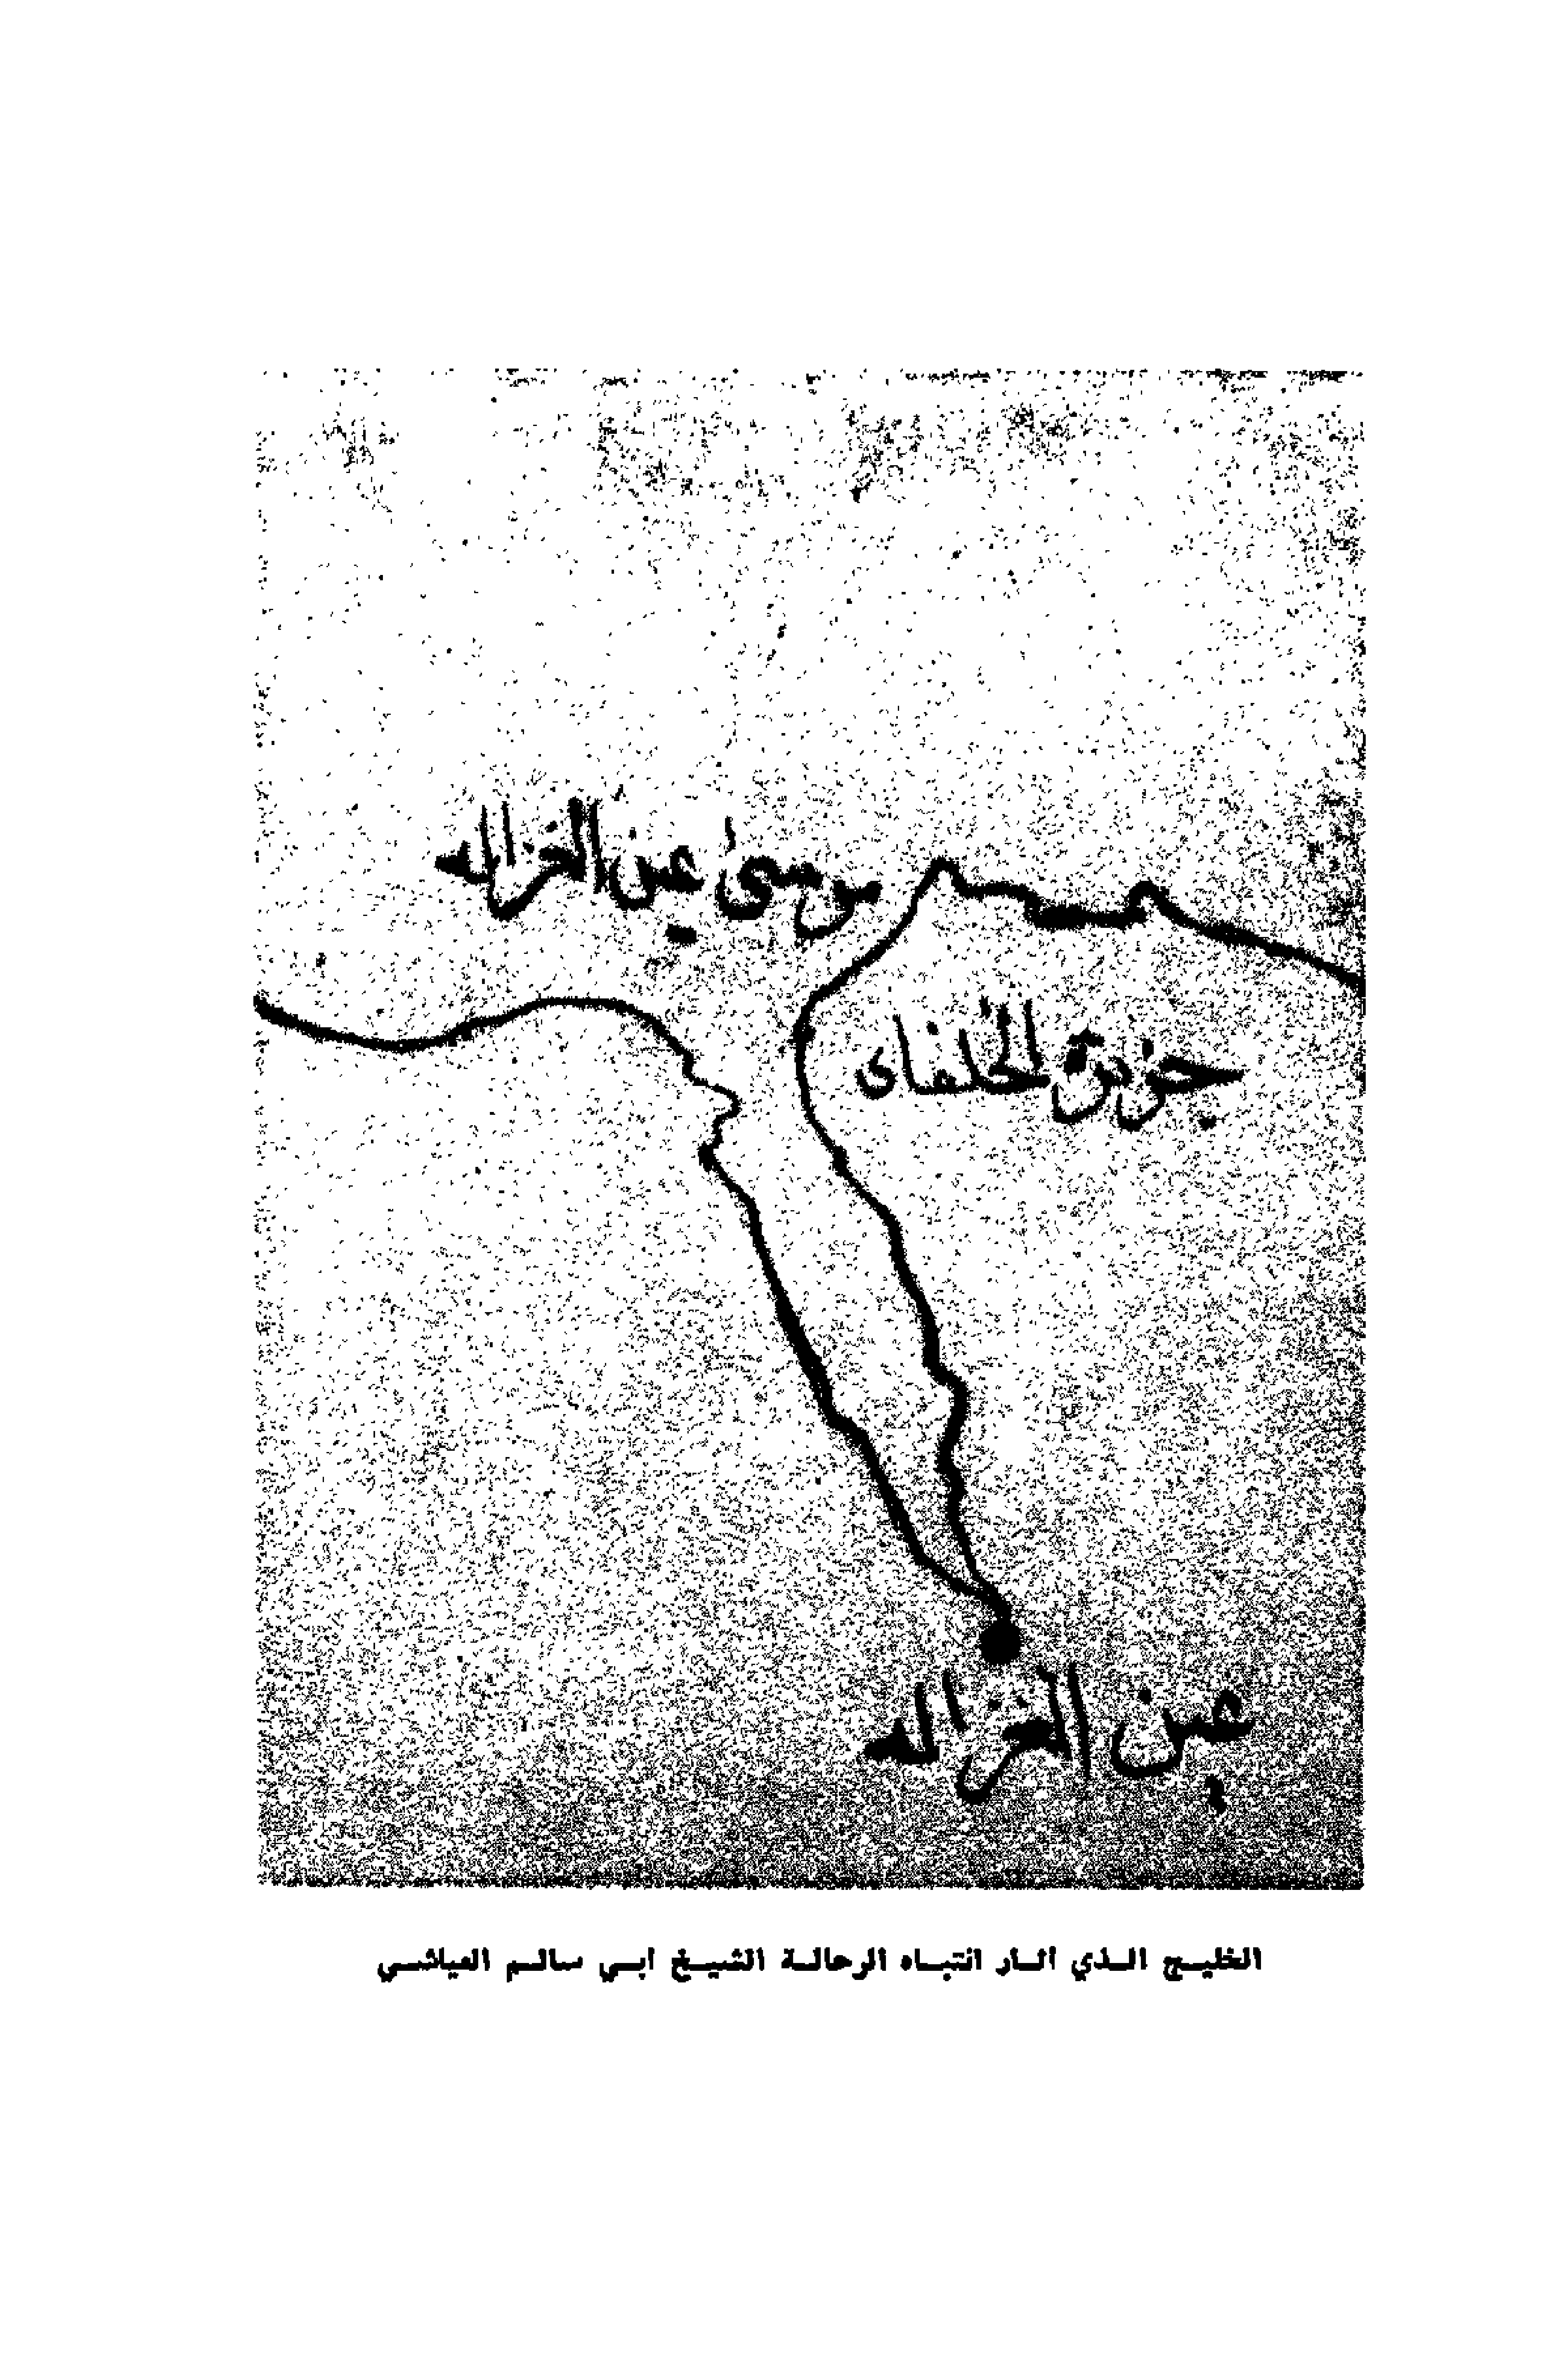 مرسى عين الغزاله
جزيرة الخلفاى
عين الغزاله
الخليج الذي اثار انتباه الرحالة الشيخ ابي سالم العياشي